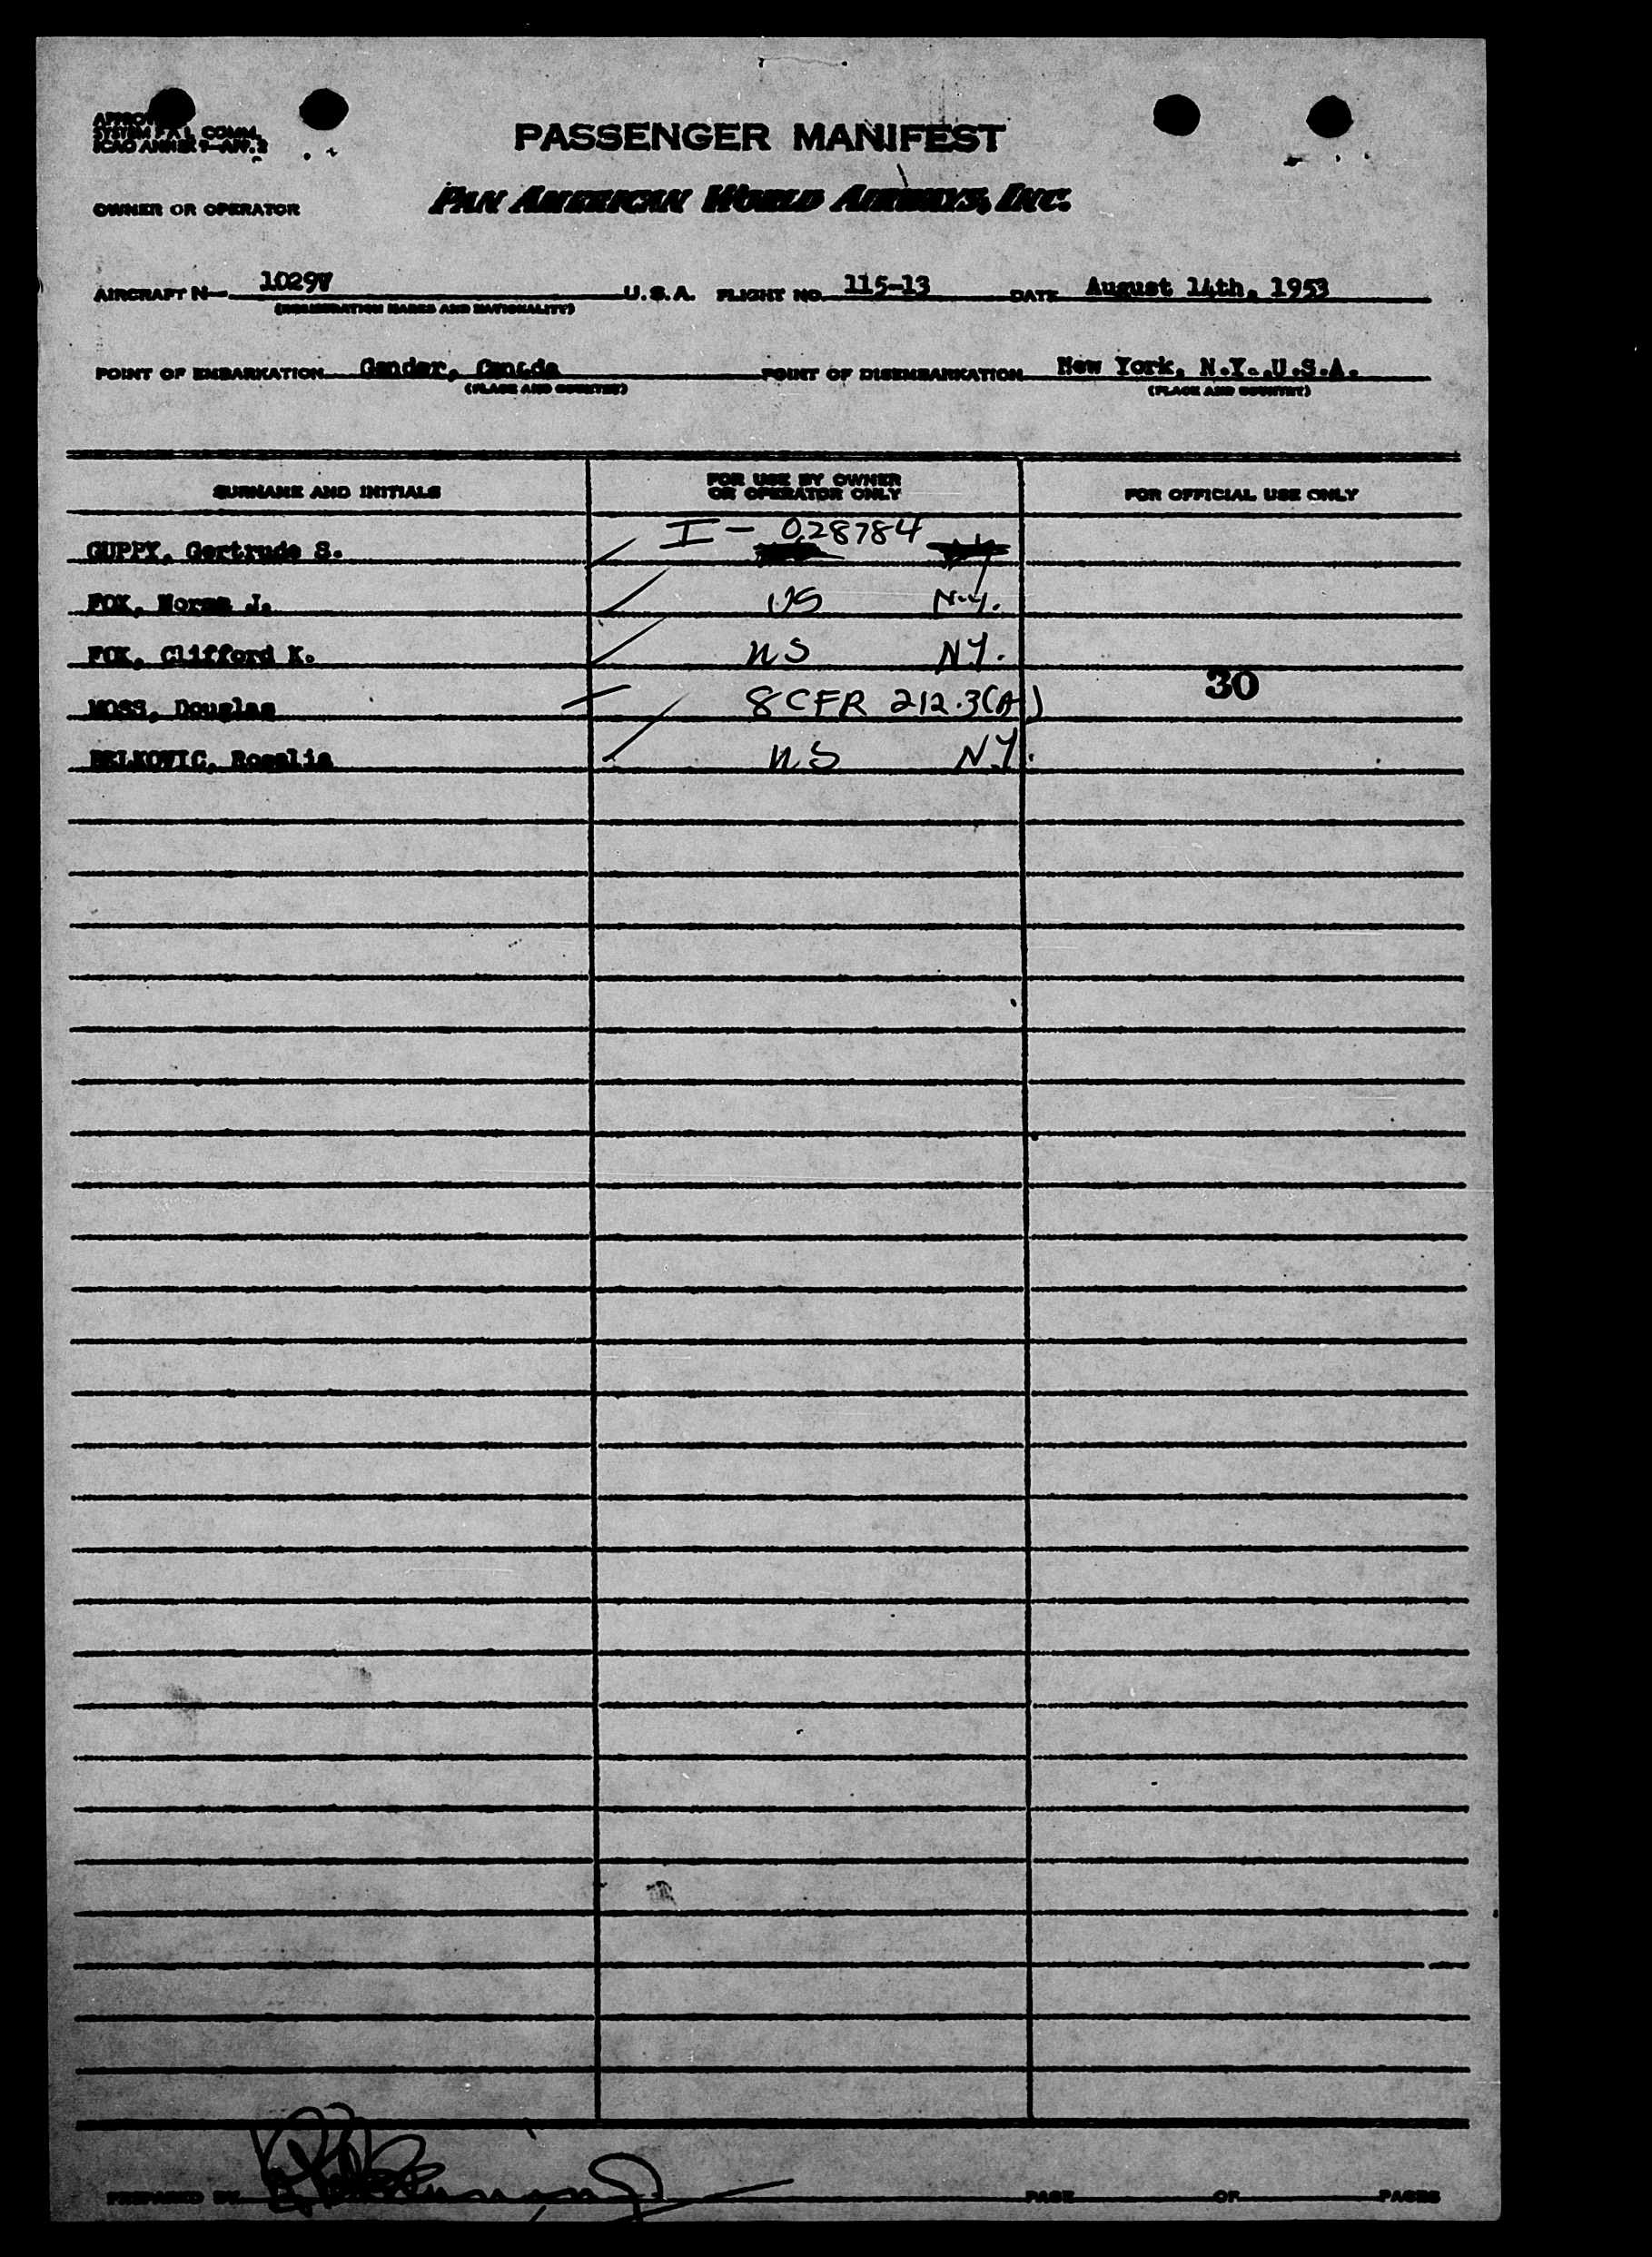 APPROV
SYSTEM F.A.L. COMM.
ICAO ANNEX 9-APP. 2
PASSENGER MANIFEST
OWNER OR OPERATOR PAN AMERICAN WORLD AIRWAYS, INC.
AIRCRAFT N- 1029V U.S.A. FLIGHT NO. 115-13 DATE August 14th, 1953
(REGISTRATION MARKS AND NATIONALITY)
POINT OF EMBARKATION Gander, Canada POINT OF DISEMBARKATION New York, N.Y. U.S.A.
(PLACE AND COUNTRY) (PLACE AND COUNTRY)
SURNAME AND INITIALS FOR USE BY OWNER OR OPERATOR ONLY FOR OFFICIAL USE ONLY
I - 028784
GUPPY, Gertrude S.
FOX, Norma J. US N.Y.
FOX, Clifford K. US NY.
MOSS, Douglas 8 CFR 212.3(A) 30
BELKOVIC, Rosalia US NY.
PREPARED BY PAGE OF PAGES